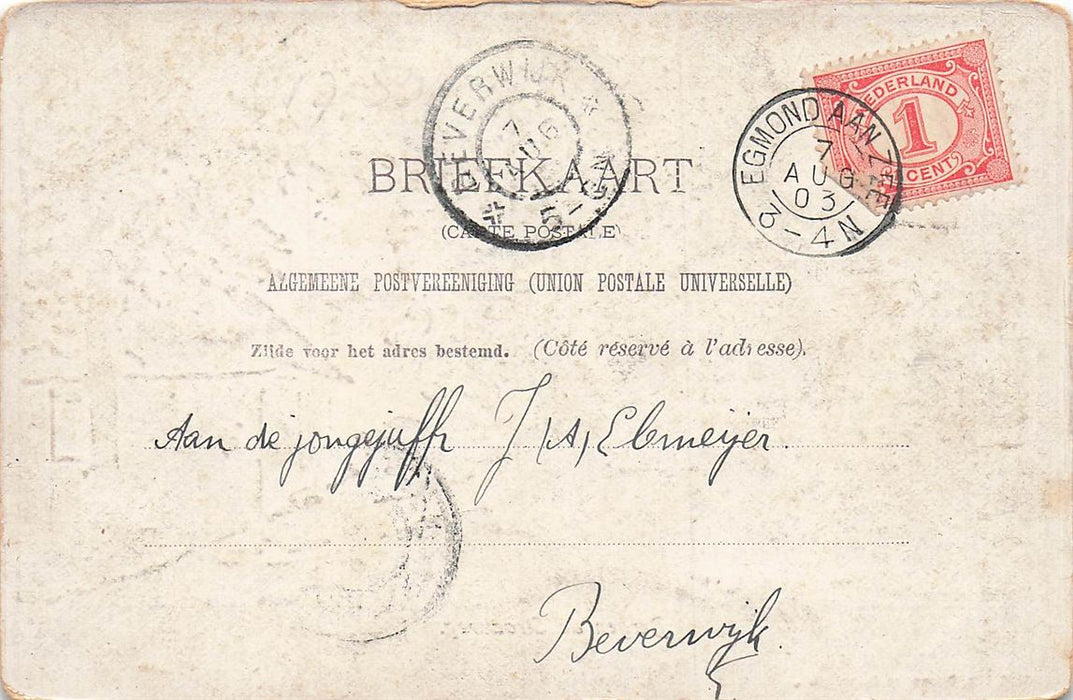 BEVERWIJK
7 AUG
5-6N
NEDERLAND
1
CENT
EGMOND AAN ZEE
7
AUG
03
3-4N
BRIEFKAART
(CARTE POSTALE)
ALGEMEENE POSTVEREENIGING (UNION POSTALE UNIVERSELLE)
Zijde voor het adres bestemd. (Côté réservé à l'adresse).
Aan de jongejuffr J (A) Ebmeijer.
Beverwijk.